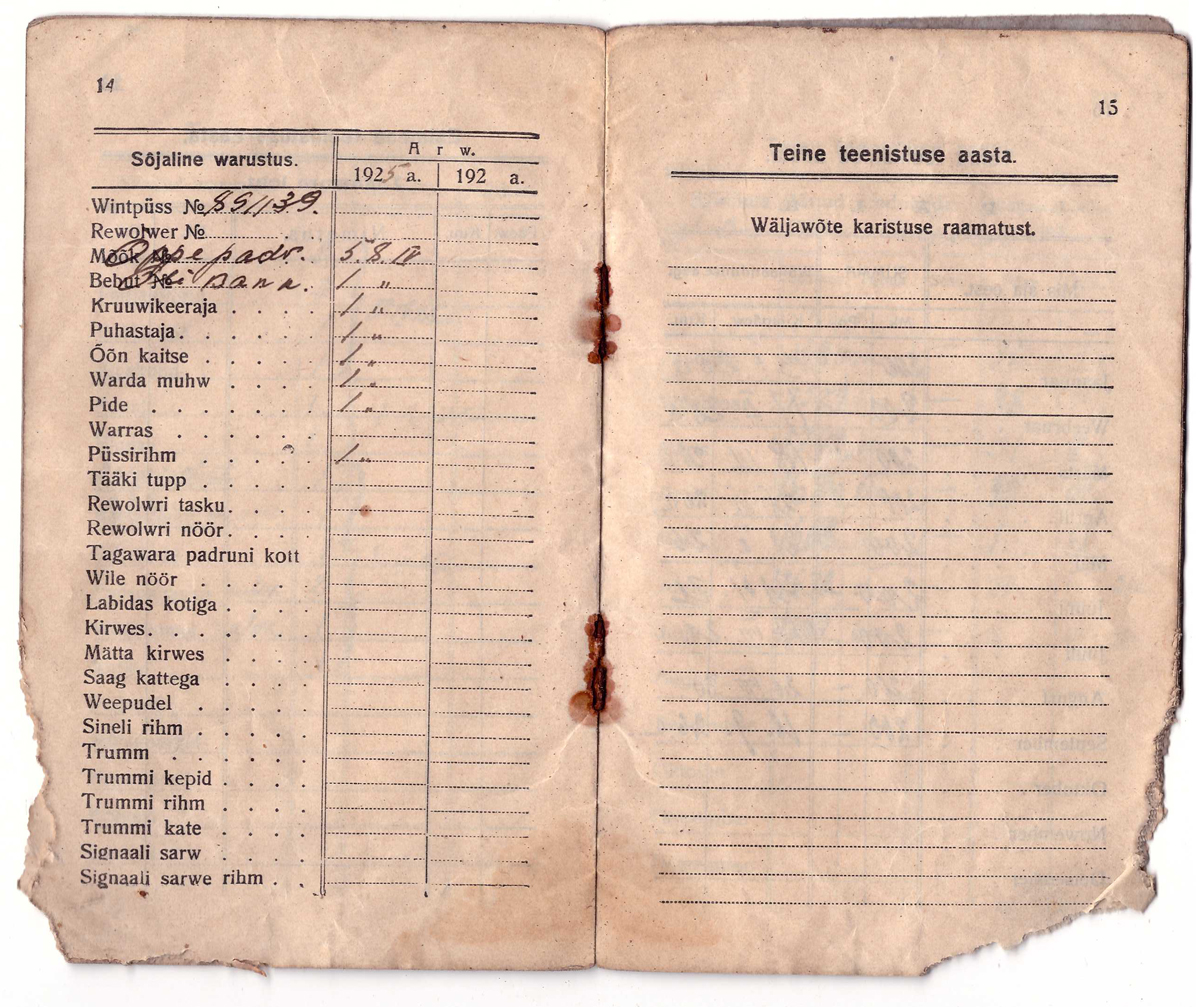 14
Sõjaline warustus.
Arw.
1925 a.
192 a.
Wintpüss № 891139.
Rewolwer №
Mõõk № Õppe padr. 5. 8 IV
Bebut № Õli kann. 1 "
Kruuwikeeraja . . . . 1 "
Puhastaja . . . . . 1 "
Õõn kaitse . . . . . 1 "
Warda muhw . . . . 1 "
Pide . . . . . . . 1 "
Warras . . . . . .
Püssirihm . . . . . 1 "
Tääki tupp . . . . .
Rewolwri tasku . . . .
Rewolwri nöör . . . .
Tagawara padruni kott
Wile nöör . . . . .
Labidas kotiga . . . .
Kirwes . . . . . . .
Mätta kirwes . . . .
Saag kattega . . . .
Weepudel . . . . .
Sineli rihm . . . . .
Trumm . . . . . .
Trummi kepid . . . .
Trummi rihm . . . .
Trummi kate . . . .
Signaali sarw . . . .
Signaali sarwe rihm . .
15
Teine teenistuse aasta.
Wäljawõte karistuse raamatust.